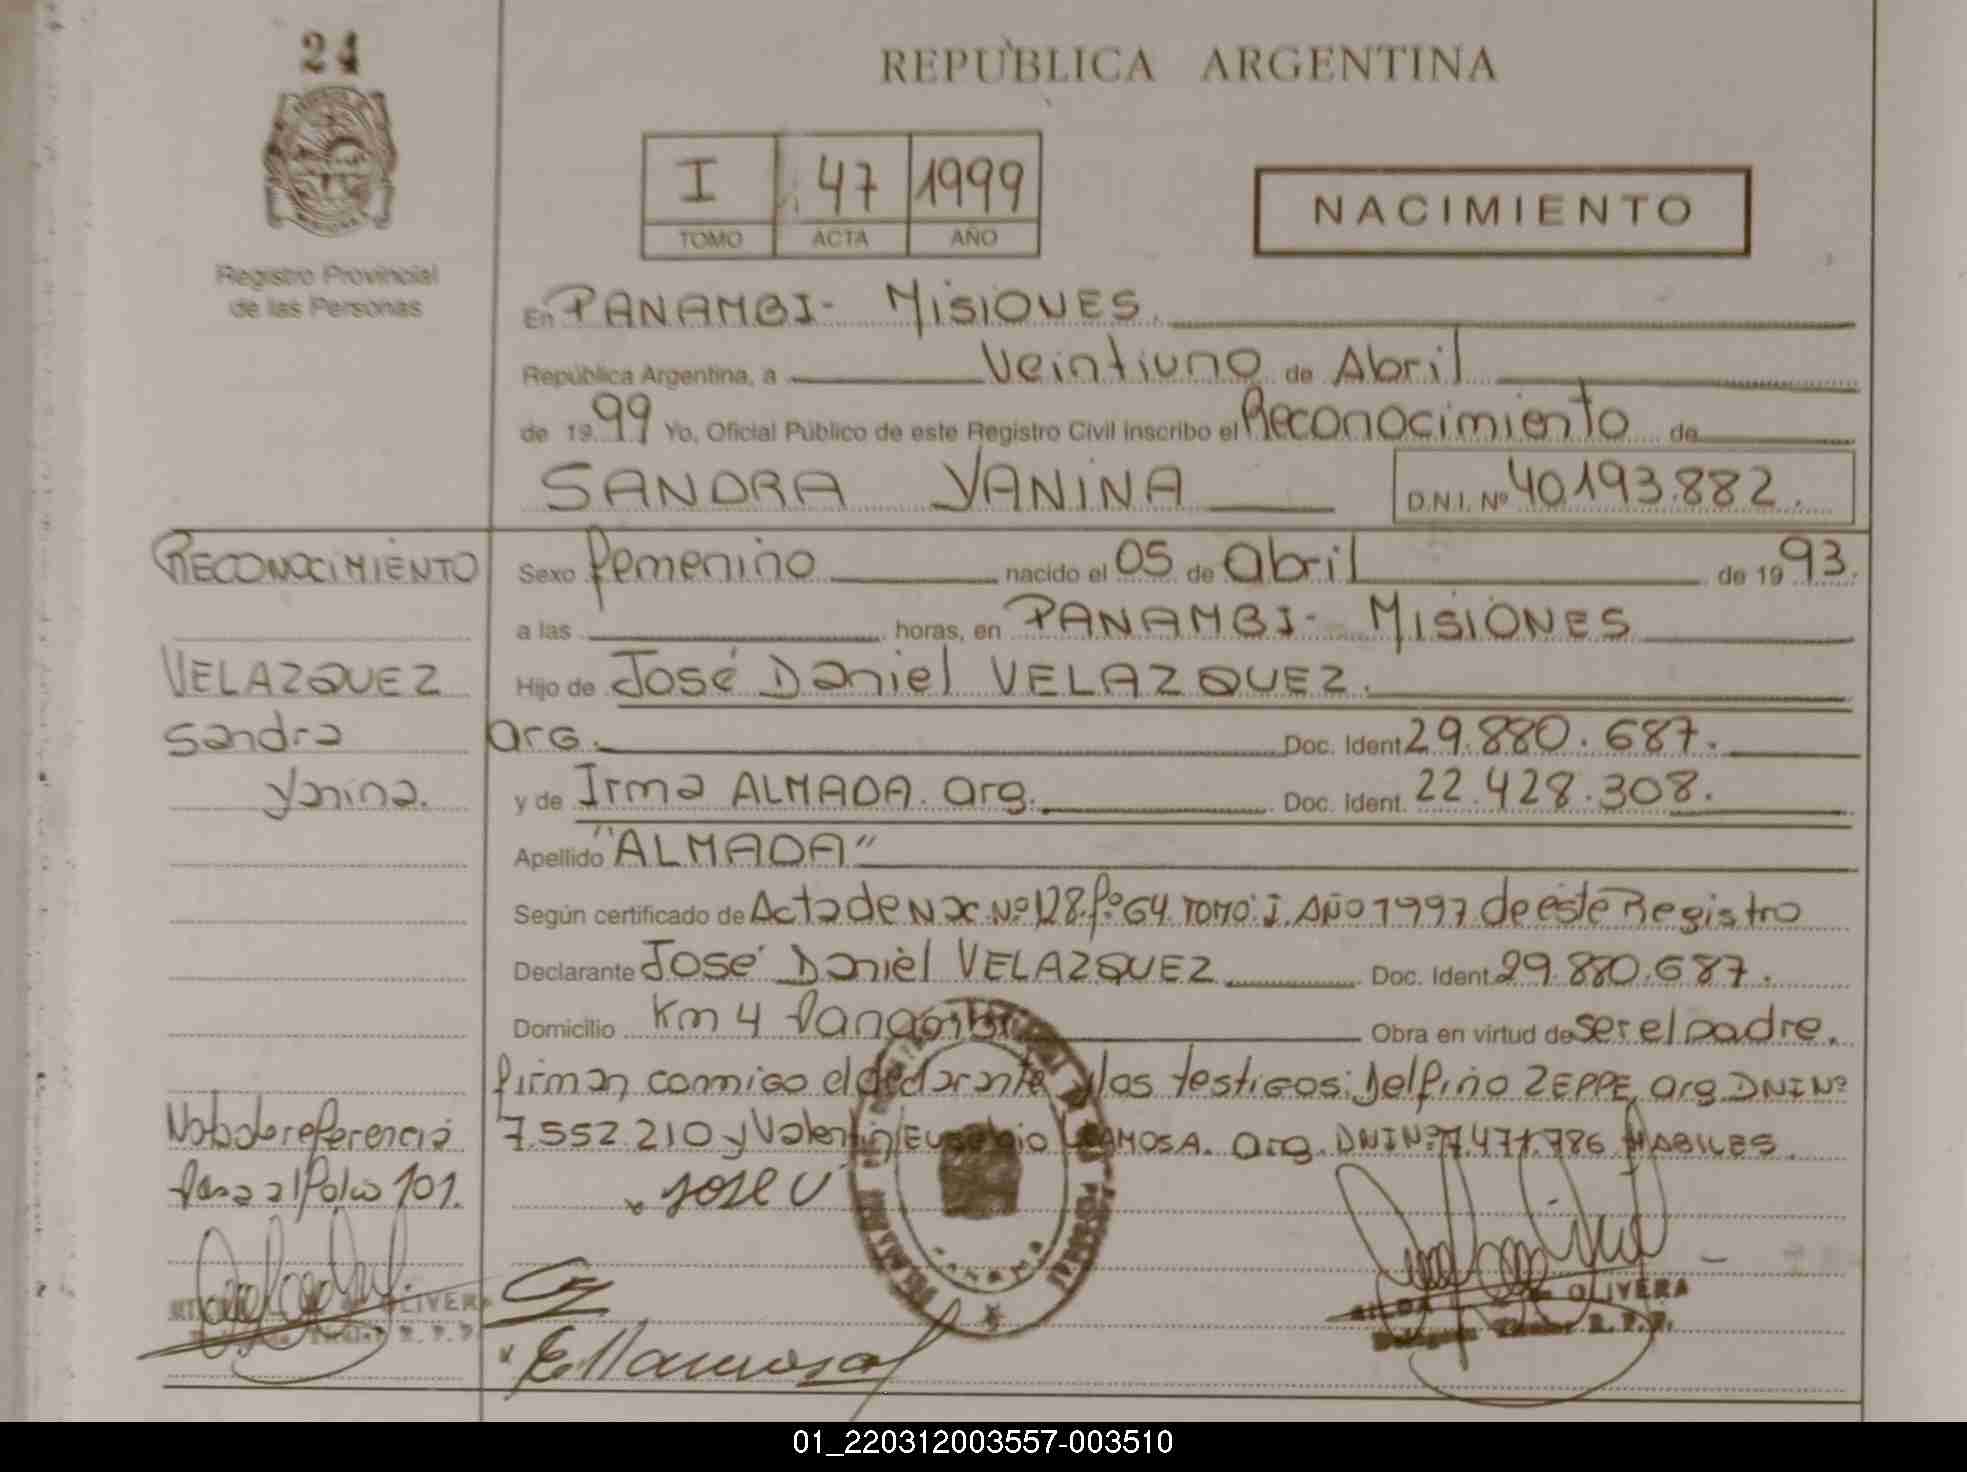 24
REPUBLICA ARGENTINA
I 47 1999
TOMO ACTA AÑO
NACIMIENTO
Registro Provincial
de las Personas
En PANAMBI- MISIONES
República Argentina, a Veintiuno de Abril
de 1999 Yo, Oficial Público de este Registro Civil inscribo el Reconocimiento de
SANDRA YANINA D.N.I. Nº 40.193.882.
RECONOCIMIENTO
Sexo femenino nacido el 05 de abril de 1993.
a las horas, en PANAMBI- MISIONES
VELAZQUEZ
Sandra
Yanina.
Hijo de José Daniel VELAZQUEZ.
arg. Doc. Ident. 29.880.687.
y de Irma ALMADA. arg. Doc. Ident. 22.428.308.
Apellido "ALMADA"
Según certificado de Acta de Nac Nº 128. fº 64 TOMO I. AÑO 1997 de este Registro
Declarante José Daniel VELAZQUEZ Doc. Ident. 29.880.687.
Domicilio Km 4 Obra en virtud de ser el padre.
firman conmigo el declarante y los testigos: Delfino ZEPPE, arg. DNI Nº
7.552.210 y Valentin Eusebio LLAMOSA. arg. DNI Nº 7.471.786 HABILES.
Nota de referencia
Pasa al Folio 101.
JOSE V
OLIVERA
R. P. P.
E. Llamosa
OLIVERA
R. P. P.
PANAMBI
01_220312003557-003510